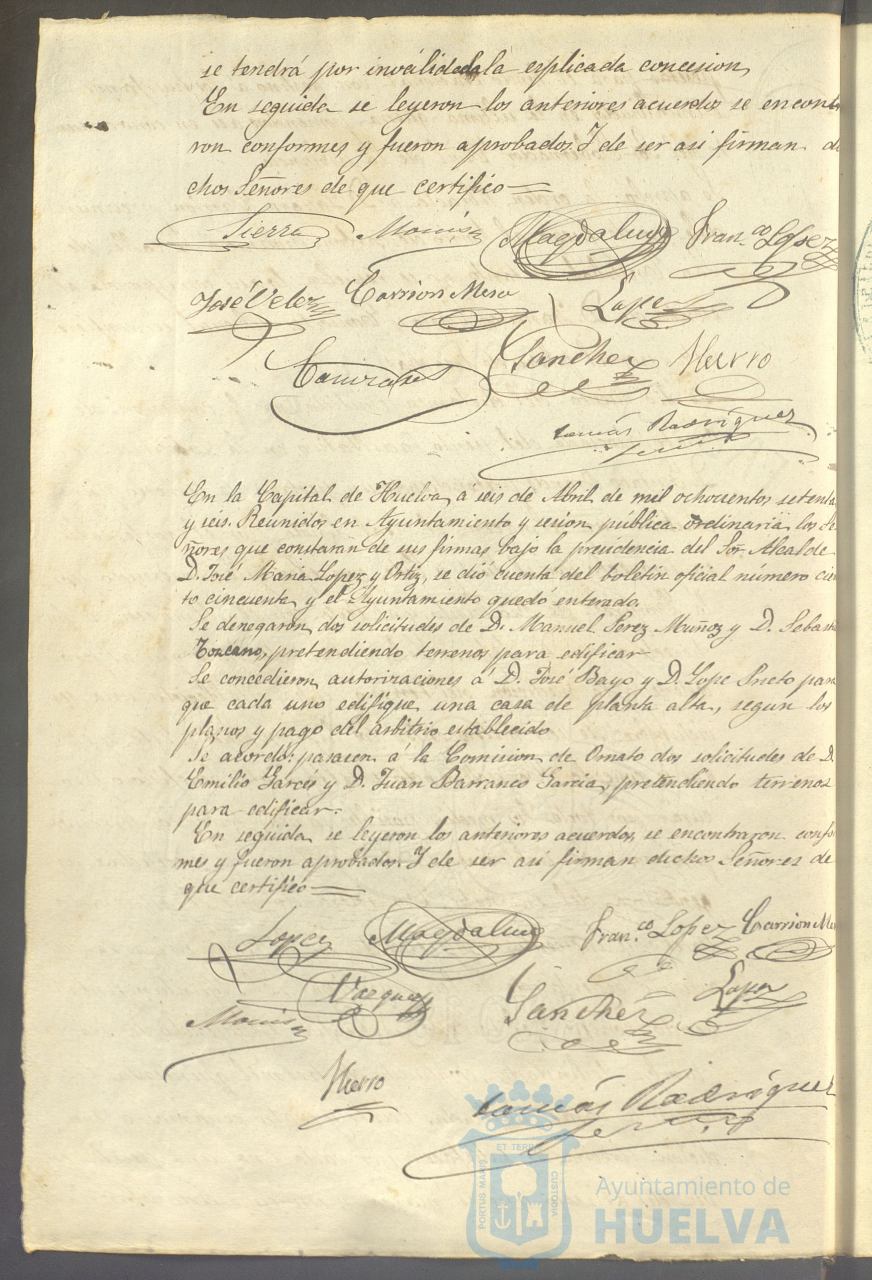 se tendrá por inválidada la esplicada concesion,
En seguida se leyeron los anteriores acuerdos se encontra
ron conformes y fueron aprobados. Y de ser asi firman di
chos Señores de que certifico
Sierra Magdaleno Fran.co Lopez
José Velez Carrion Mesa Lopez
Cañizares Sanchez Hierro
Tomás Rodriguez
En la Capital de Huelva á seis de Abril de mil ochocientos setenta
y seis. Reunidos en Ayuntamiento y sesion pública ordinaria los Se
ñores que constaran de sus firmas bajo la presidencia del Sor. Alcalde
D. José Maria Lopez y Ortiz, se dió cuenta del boletin oficial número cien
to cincuenta, y el Ayuntamiento quedó enterado.
Se denegaron dos solicitudes de D. Manuel Perez Muñoz y D. Sebasti
Toscano, pretendiendo terrenos para edificar
Se concedieron autorizaciones á D. José Bayo y D. Lope Prieto para
que cada uno edifique una casa de planta alta, segun los
planos y pago del arbitrio establecido
Se acordó: pasasen á la Comision de Ornato dos solicitudes de D.
Emilio Garcés y D. Juan Barranco Garcia, pretendiendo terrenos
para edificar.
En seguida se leyeron los anteriores acuerdos, se encontraron confor
mes y fueron aprobados. Y de ser asi firman dichos Señores de
que certifico
Lopez Magdaleno Fran.co Lopez Carrion Me
Vazquez Sanchez Lopez
Hierro
Tomás Rodriguez
PORTUS MARIS ET TERRÆ CUSTODIA
Ayuntamiento de
HUELVA